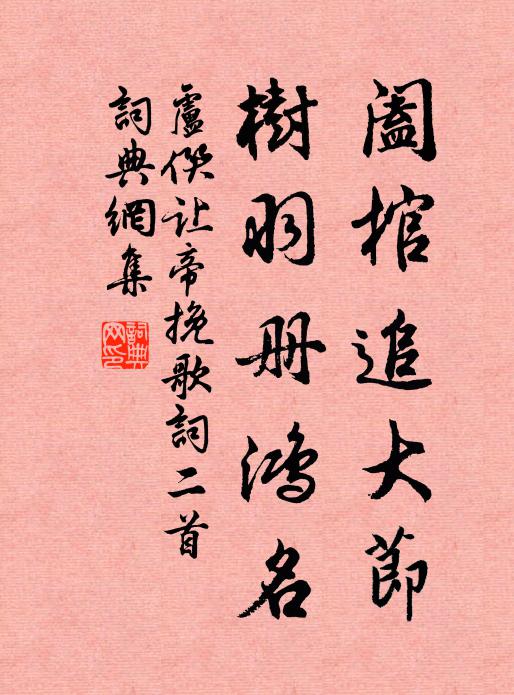 阖棺追大節
樹羽册鸿名
盧僎让帝挽歌詞二首
詞典網集
詞典网印